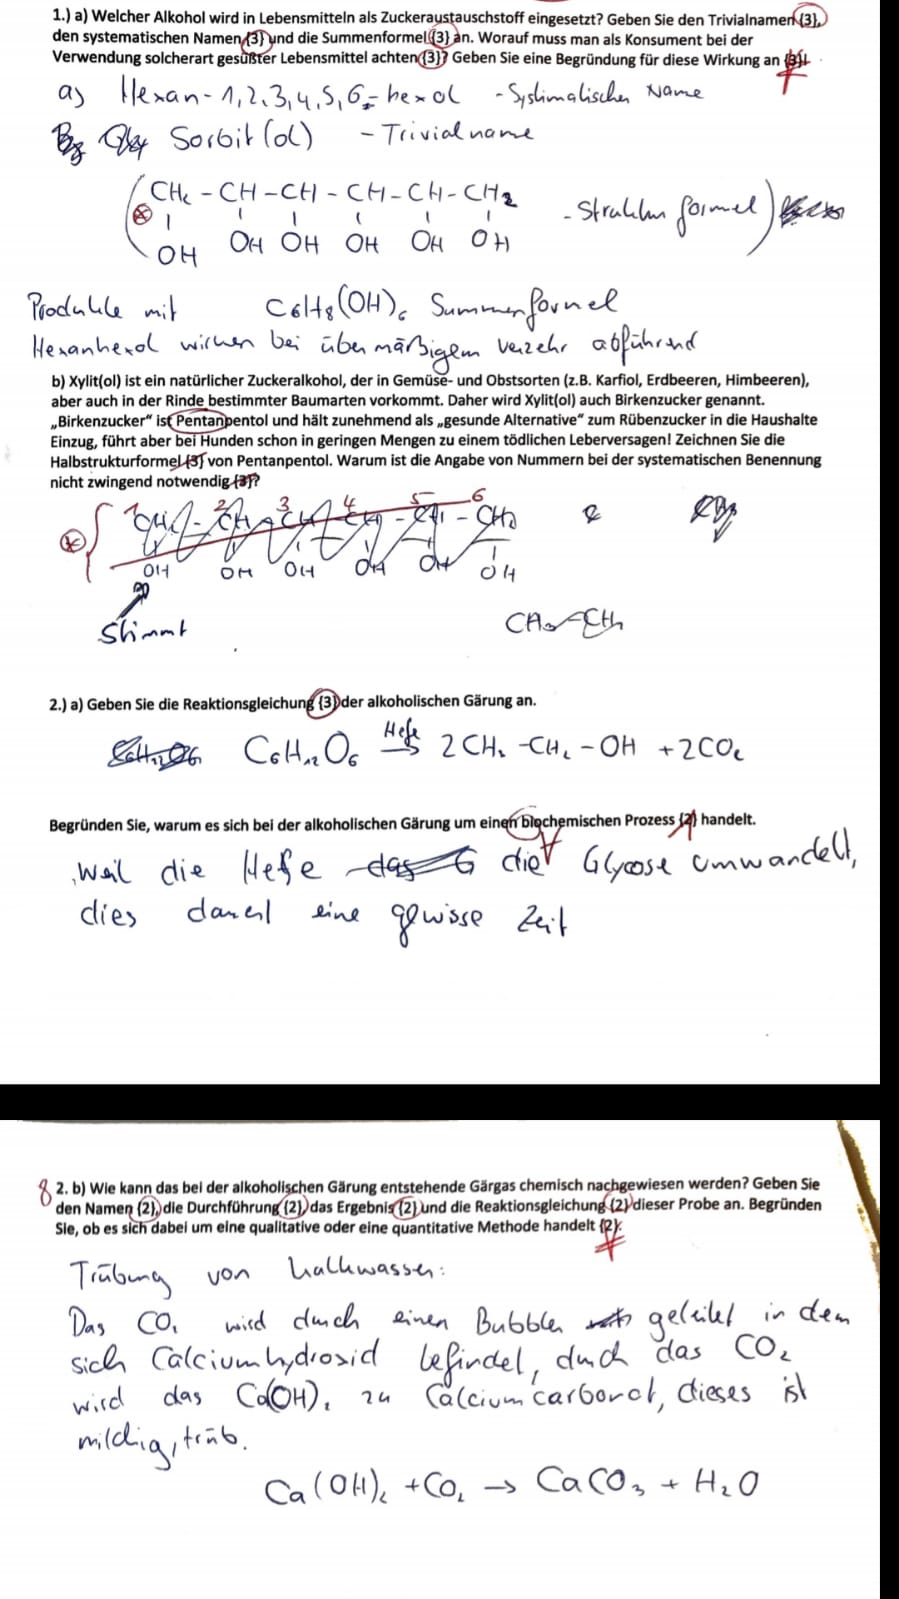 1.) a) Welcher Alkohol wird in Lebensmitteln als Zuckeraustauschstoff eingesetzt? Geben Sie den Trivialnamen {3},
den systematischen Namen {3} und die Summenformel {3} an. Worauf muss man als Konsument bei der
Verwendung solcherart gesüßter Lebensmittel achten {3}? Geben Sie eine Begründung für diese Wirkung an {3}!
a) Hexan-1,2,3,4,5,6-hexol - Systimatischer Name
Sorbit(ol) - Trivialname
(CH2 - CH - CH - CH - CH - CH2 - Strukturformel)
OH OH OH OH OH OH
Produkte mit C6H8(OH)6 Summenformel
Hexanhexol wirken bei übermäßigem Verzehr abführend
b) Xylit(ol) ist ein natürlicher Zuckeralkohol, der in Gemüse- und Obstsorten (z.B. Karfiol, Erdbeeren, Himbeeren),
aber auch in der Rinde bestimmter Baumarten vorkommt. Daher wird Xylit(ol) auch Birkenzucker genannt.
„Birkenzucker“ ist Pentanpentol und hält zunehmend als „gesunde Alternative“ zum Rübenzucker in die Haushalte
Einzug, führt aber bei Hunden schon in geringen Mengen zu einem tödlichen Leberversagen! Zeichnen Sie die
Halbstrukturformel {3} von Pentanpentol. Warum ist die Angabe von Nummern bei der systematischen Benennung
nicht zwingend notwendig {3}?
1 2 3 4 5 6
CH2 - CH - CH - CH - CH - CH2
OH OH OH OH OH OH
Stimmt
2.) a) Geben Sie die Reaktionsgleichung {3} der alkoholischen Gärung an.
C6H12O6 C6H12O6 Hefe → 2 CH3 - CH2 - OH + 2 CO2
Begründen Sie, warum es sich bei der alkoholischen Gärung um einen biochemischen Prozess {2} handelt.
Weil die Hefe das G die Glycose umwandelt,
dies dauert eine gewisse Zeit
8 2. b) Wie kann das bei der alkoholischen Gärung entstehende Gärgas chemisch nachgewiesen werden? Geben Sie
den Namen {2}, die Durchführung {2}, das Ergebnis {2} und die Reaktionsgleichung {2} dieser Probe an. Begründen
Sie, ob es sich dabei um eine qualitative oder eine quantitative Methode handelt {2}.
Trübung von Kalkwasser:
Das CO2 wird durch einen Bubbler geleitet in dem
sich Calciumhydroxid befindet, durch das CO2
wird das Ca(OH)2 zu Calciumcarbonat, dieses ist
milchig, trüb.
Ca(OH)2 + CO2 → CaCO3 + H2O